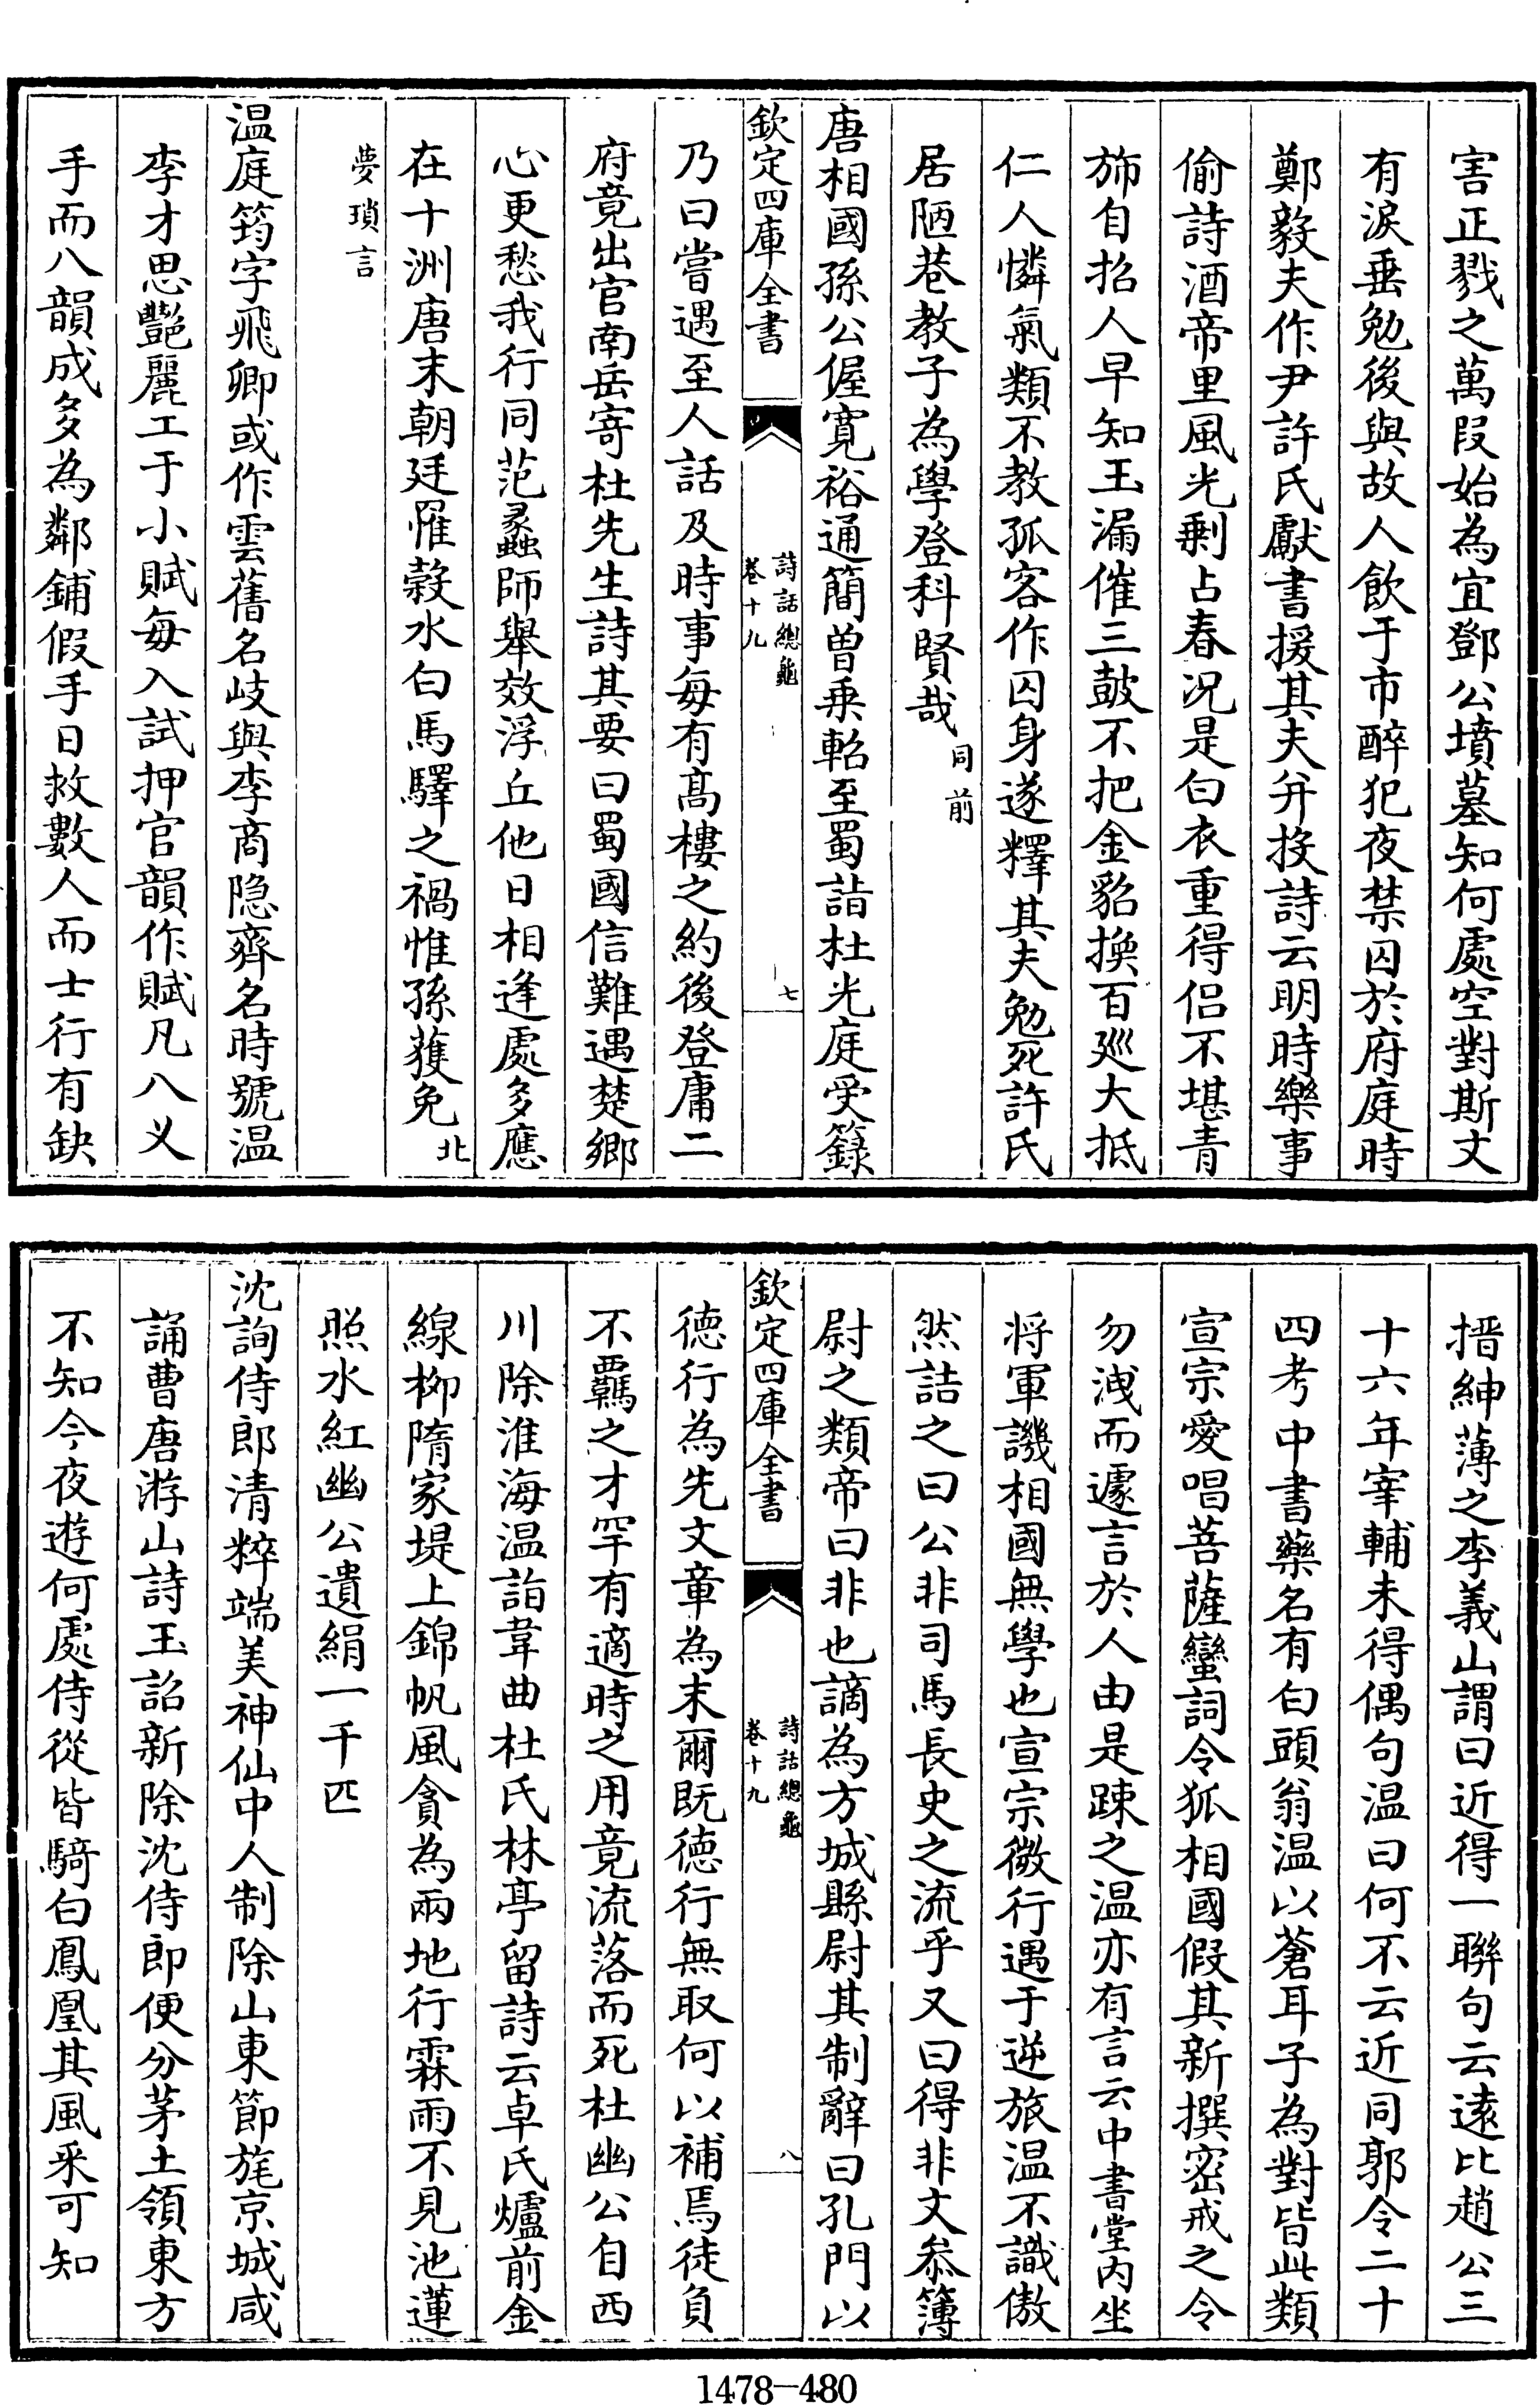 害正戮之萬段始為宜鄧公墳墓知何處空對斯文
有淚垂勉後與故人飲于市醉犯夜禁囚於府庭時
鄭毅夫作尹許氏獻書援其夫并投詩云明時樂事
偷詩酒帝里風光剰占春况是白衣重得侣不堪青
斾自招人早知玉漏催三鼓不把金貂換百廵大抵
仁人憐氣類不教孤客作囚身遂釋其夫勉死許氏
居陋巷教子為學登科賢哉同前
唐相國孫公偓寛裕通簡曽乗軺至蜀詣杜光庭受籙
欽定四庫全書
詩話總龜
卷十九
七
乃曰嘗遇至人話及時事每有髙樓之約後登庸二
府竟出官南岳寄杜先生詩其要曰蜀國信難遇楚鄉
心更愁我行同范蠡師舉效浮丘他日相逢處多應
在十洲唐末朝廷罹榖水白馬驛之禍惟孫獲免北
夢瑣言
温庭筠字飛卿或作雲舊名岐與李商隐齊名時號温
李才思艷麗工于小賦每入試押官韻作賦凡八义
手而八韻成多為鄰鋪假手日救數人而士行有缺
搢紳薄之李義山謂曰近得一聯句云逺比趙公三
十六年宰輔未得偶句温曰何不云近同郭令二十
四考中書藥名有白頭翁温以蒼耳子為對皆此類
宣宗愛唱菩薩蠻詞令狐相國假其新撰密戒之令
勿洩而遽言於人由是踈之温亦有言云中書堂内坐
将軍譏相國無學也宣宗微行遇于逆旅温不識傲
然詰之曰公非司馬長史之流乎又曰得非文叅簿
尉之類帝曰非也謫為方城縣尉其制辭曰孔門以
欽定四庫全書
詩話總龜
卷十九
八
徳行為先文章為末爾既徳行無取何以補焉徒負
不羈之才罕有適時之用竟流落而死杜豳公自西
川除淮海温詣韋曲杜氏林亭留詩云卓氏爐前金
線桞隋家堤上錦帆風貪為兩地行霖雨不見池蓮
照水紅豳公遺絹一千匹
沈詢侍郎清粹端美神仙中人制除山東節旄京城咸
誦曹唐游山詩玉詔新除沈侍郎便分茅土領東方
不知今夜遊何處侍從皆騎白鳳凰其風采可知
1478—480